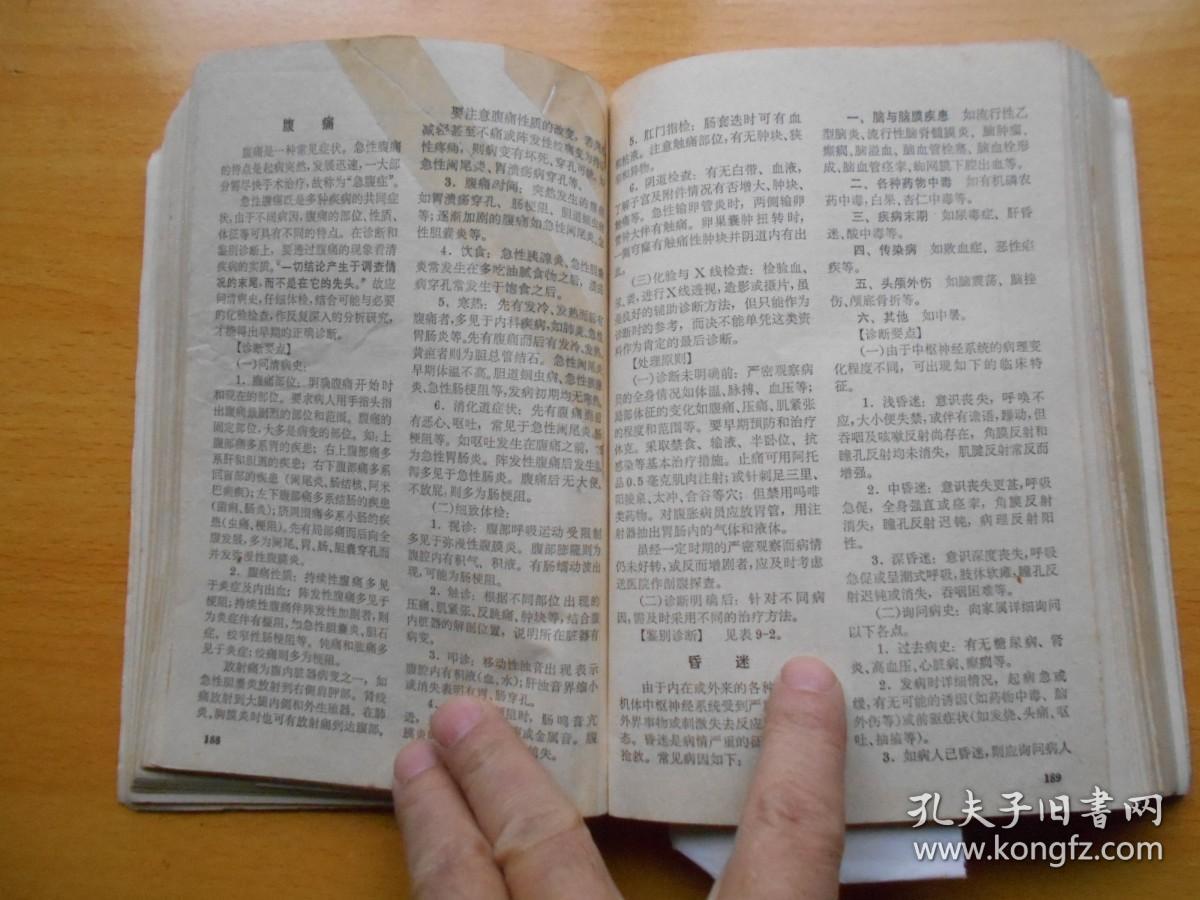 腹痛
腹痛是一种常见症状。急性腹痛
的特点是起病突然，发展迅速，一大部
分需尽快手术治疗，故称为“急腹症”。
急性腹痛既是多种疾病的共同症
状，由于不同病因，腹痛的部位、性质、
体征等可具有不同的特点。在诊断和
鉴别诊断上，要透过腹痛的现象看清
疾病的实质。“一切结论产生于调查情
况的末尾，而不是在它的先头。”故应
问清病史，仔细体检，结合可能与必要
的化验检查，作反复深入的分析研究，
才能得出早期的正确诊断。
【诊断要点】
(一)问清病史：
1．腹痛部位：明确腹痛开始时
和现在的部位。要求病人用手指头指
出腹痛最剧烈的部位和范围。腹痛的
固定部位，大多是病变的部位。如：上
腹部痛多系胃的疾患；右上腹部痛多
系肝和胆道的疾患；右下腹部痛多系
回盲部的疾患(阑尾炎、肠结核、阿米
巴痢疾)；左下腹部痛多系结肠的疾患
(菌痢、肠炎)；脐周围痛多系小肠的疾
患(虫痛、梗阻)。先有局部痛而后向全
腹发展，多为阑尾、胃、肠、胆囊穿孔而
并发弥漫性腹膜炎。
2．腹痛性质：持续性腹痛多见
于炎症及内出血；阵发性腹痛多见于
梗阻；持续性腹痛伴阵发性加剧者，则
为炎症伴有梗阻，如急性胆囊炎、胆石
症、绞窄性肠梗阻等。钝痛和胀痛多
见于炎症；绞痛则多为梗阻。
放射痛为腹内脏器病变之一，如
急性胆囊炎放射到右侧肩胛部。肾绞
痛放射到大腿内侧和外生殖器。在肺
炎、胸膜炎时也可有放射痛到达腹部。
188
要注意腹痛性质的改变，若
减轻甚至不痛或阵发性绞痛变为
性疼痛，则病变有坏死、穿孔可能，如
急性阑尾炎、胃溃疡病穿孔等。
3．腹痛时间：突然发生的
如胃溃疡穿孔、肠梗阻、胆道蛔虫
等；逐渐加剧的腹痛如急性阑尾炎、急
性胆囊炎等。
4．饮食：急性胰腺炎、急性胆囊
炎常发生在多吃油腻食物之后。溃疡
病穿孔常发生于饱食之后。
5．寒热：先有发冷、发热而后有
腹痛者，多见于内科疾病，如肺炎、急性
胃肠炎等。先有腹痛而后有发冷、发热、
黄疸者则为胆总管结石。急性阑尾炎
早期体温不高。胆道蛔虫病、急性胰腺
炎、急性肠梗阻等，发病初期均无寒热。
6．消化道症状：先有腹痛而后
有恶心、呕吐，常见于急性阑尾炎、肠
梗阻等。如呕吐发生在腹痛之前，
为急性胃肠炎。阵发性腹痛后有腹
泻多见于急性肠炎。腹痛后无大便、
不放屁，则多为肠梗阻。
(二)细致体检：
1．视诊：腹部呼吸运动受限制
多见于弥漫性腹膜炎。腹部膨隆则为
腹腔内有积气、积液。有肠蠕动波出
现，可能为肠梗阻。
2．触诊：根据不同部位出现的
压痛、肌紧张、反跳痛、肿块等，结合腹
内脏器的解剖位置，说明所在脏器有
病变。
3．叩诊：移动性浊音出现表示
腹腔内有积液(血、水)；肝浊音界缩小
或消失表明有胃、肠穿孔。
4．阻时，肠鸣音亢
进，或金属音。腹
膜炎消失。
5．肛门指检：肠套迭时可有血
和粘液。注意触痛部位，有无肿块、狭
和异物。
6．阴道检查：有无白带、血液，
了解子宫及附件情况有否增大、肿块、
触痛等。急性输卵管炎时，两侧输卵
管肿大伴有触痛。卵巢囊肿扭转时，
一侧穹窿有触痛性肿块并阴道内有出
血。
(三)化验与X线检查：检验血、
尿、粪，进行X线透视，造影或摄片，虽
是良好的辅助诊断方法，但只能作为
诊断时的参考，而决不能单凭这类资
料作为肯定的最后诊断。
【处理原则】
(一)诊断未明确前：严密观察病
员的全身情况如体温、脉搏、血压等；
局部体征的变化如腹痛、压痛、肌紧张
的程度和范围等。要早期预防和治疗
休克。采取禁食、输液、半卧位、抗
感染等基本治疗措施。止痛可用阿托
品0.5毫克肌肉注射；或针刺足三里、
阳陵泉、太冲、合谷等穴；但禁用吗啡
类药物。对腹胀病员应放胃管，用注
射器抽出胃肠内的气体和液体。
虽经一定时期的严密观察而病情
仍未好转，或反而增剧者，应及时考虑
送医院作剖腹探查。
(二)诊断明确后：针对不同病
因，需及时采用不同的治疗方法。
【鉴别诊断】 见表9-2。
昏迷
由于内在或外来的各种
机体中枢神经系统受到严
外界事物或刺激失去反应
态。昏迷是病情严重的征
抢救。常见病因如下：
一、脑与脑膜疾患 如流行性乙
型脑炎、流行性脑脊髓膜炎、脑肿瘤、
癫痫、脑溢血、脑血管栓塞、脑血栓形
成、脑血管痉挛，蜘网膜下腔出血等。
二、各种药物中毒 如有机磷农
药中毒，白果、杏仁中毒等。
三、疾病末期 如尿毒症、肝昏
迷、酸中毒等。
四、传染病 如败血症、恶性疟
疾等。
五、头颅外伤 如脑震荡、脑挫
伤、颅底骨折等。
六、其他 如中暑。
【诊断要点】
(一)由于中枢神经系统的病理变
化程度不同，可出现如下的临床特
征。
1．浅昏迷：意识丧失，呼唤不
应，大小便失禁，或伴有谵语，躁动，但
吞咽及咳嗽反射尚存在，角膜反射和
瞳孔反射均未消失，肌腱反射常反而
增强。
2．中昏迷：意识丧失更甚，呼吸
急促，全身强直或痉挛，角膜反射
消失，瞳孔反射迟钝，病理反射阳
性。
3．深昏迷：意识深度丧失，呼吸
急促或呈潮式呼吸，肢体软瘫，瞳孔反
射迟钝或消失，吞咽困难等。
(二)询问病史：向家属详细询问
以下各点。
1．过去病史：有无糖尿病、肾
炎、高血压、心脏病、癫痫等。
2．发病时详细情况，起病急或
缓，有无可能的诱因(如药物中毒、脑
外伤等)或前驱症状(如发烧、头痛、呕
吐、抽搐等)。
3．如病人已昏迷，则应询问病人
189
孔夫子旧书网
www.kongfz.com